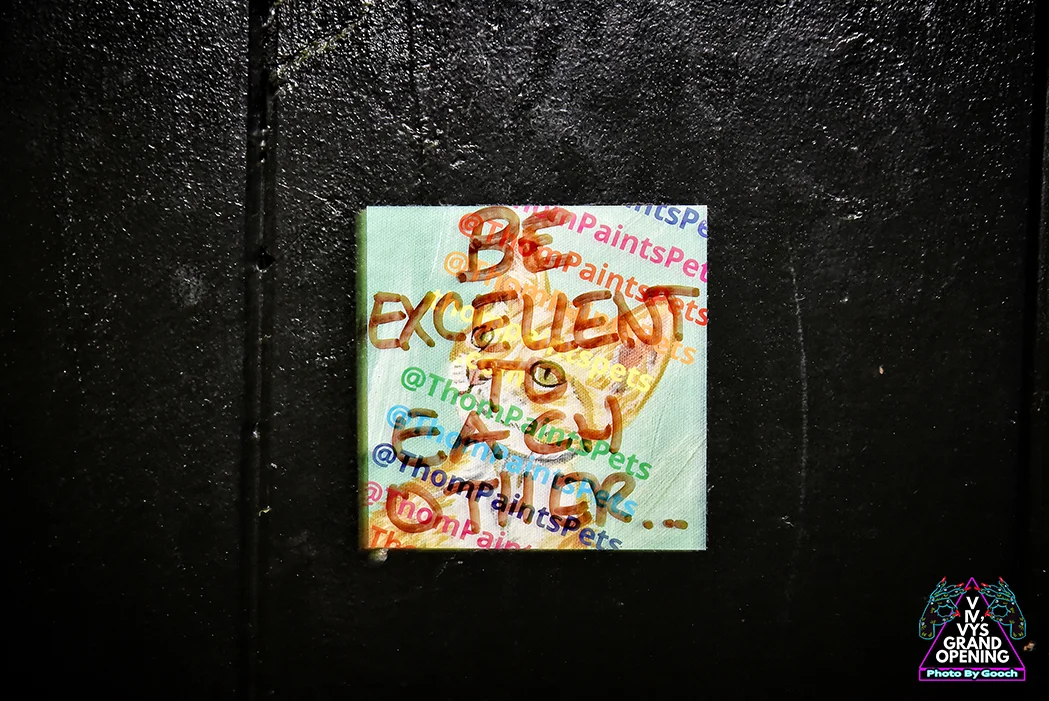 BE
EXCELLENT
TO
EACH
OTHER...
ntsPe
ThomPaintsPet
@ThomPaintsPets
@ThomPaintsPets
@ThomPaintsPets
@ThomPaintsPets
@ThomPaintsPets
@ThomPain
Th
V
IV,
VYS
GRAND
OPENING
Photo By Gooch